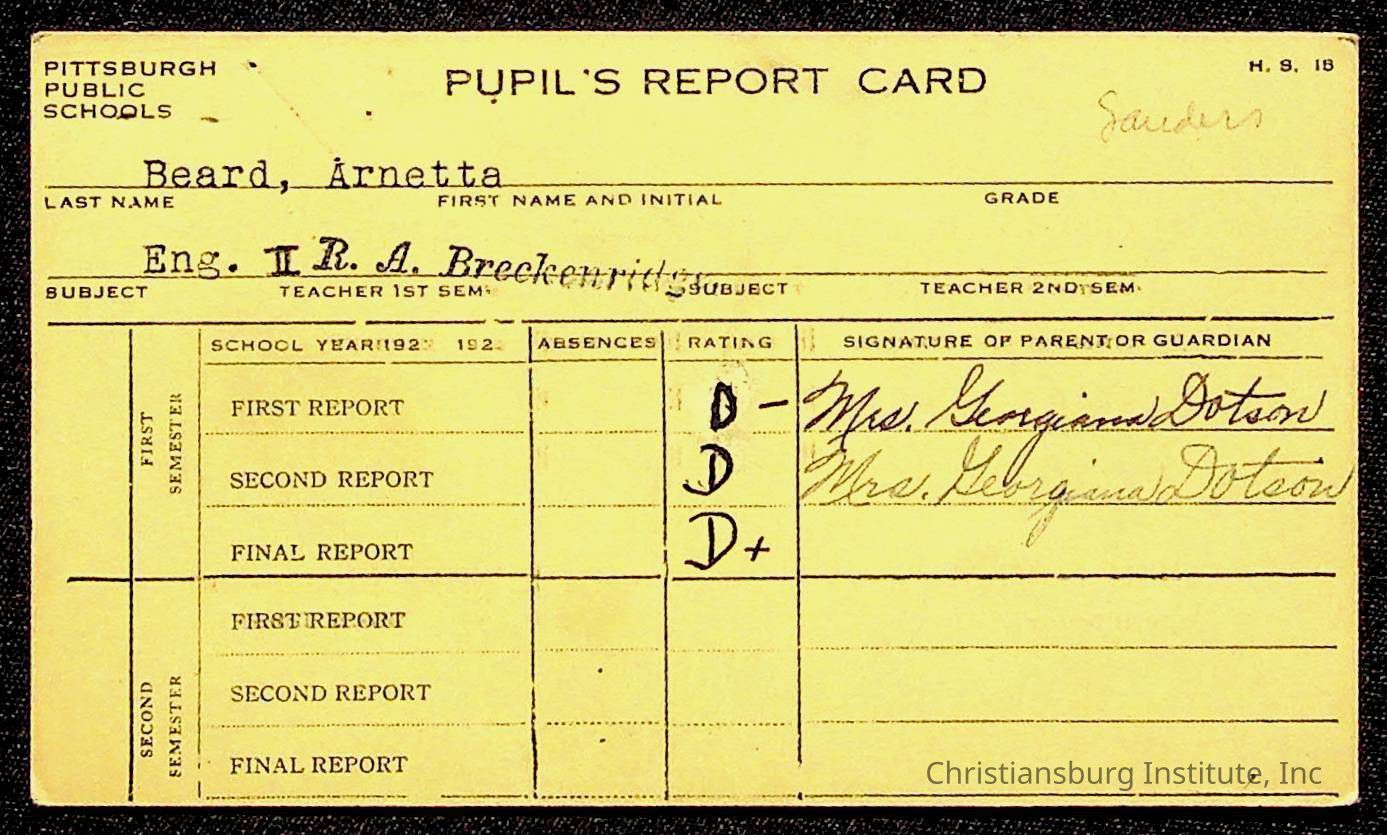 PITTSBURGH
PUBLIC
SCHOOLS
PUPIL'S REPORT CARD
H. S. 1B
Sanders
Beard, Arnetta
LAST NAME FIRST NAME AND INITIAL GRADE
Eng. II R. A. Breckenridge
SUBJECT TEACHER 1ST SEM. SUBJECT TEACHER 2ND SEM.
SCHOOL YEAR 192 192 ABSENCES RATING SIGNATURE OF PARENT OR GUARDIAN
FIRST SEMESTER
FIRST REPORT D – Mrs. Georgiana Dotson
SECOND REPORT D Mrs. Georgiana Dotson
FINAL REPORT D+
SECOND SEMESTER
FIRST REPORT
SECOND REPORT
FINAL REPORT
Christiansburg Institute, Inc